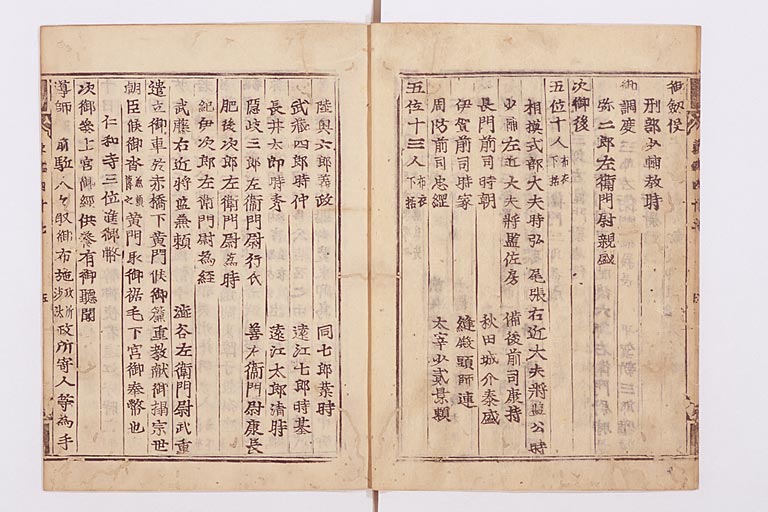 御劔役
刑部少輔教時
御調度
弥二郎左衛門尉親盛
次御後
五位十人 布衣下括
相摸式部大夫時弘 尾張右近大夫將監公時
少輔左近大夫將監佐房 備後前司康持
長門前司時朝 秋田城介泰盛
伊賀前司時家 縫殿頭師連
周防前司忠經 太宰少貳景頼
五位十三人 布衣下括
陸奥六郎義政 同七郎業時
武藏四郎時仲 遠江七郎時基
長井太郎時秀 遠江太郎清時
隠岐三郎左衛門尉行氏 善右衛門尉康長
肥後次郎左衛門尉爲時
紀伊次郎左衛門尉爲經
武藤右近將監兼頼 澁谷左衛門尉武重
遣立御車於赤橋下黄門候御簾重教献御榻宗世
朝臣候御沓 黄門取御裾毛下宮御奉幣也
仁和寺三位進御幣
次御參上宮御經供養有御聽聞
導師 布施 政所寄人等為手